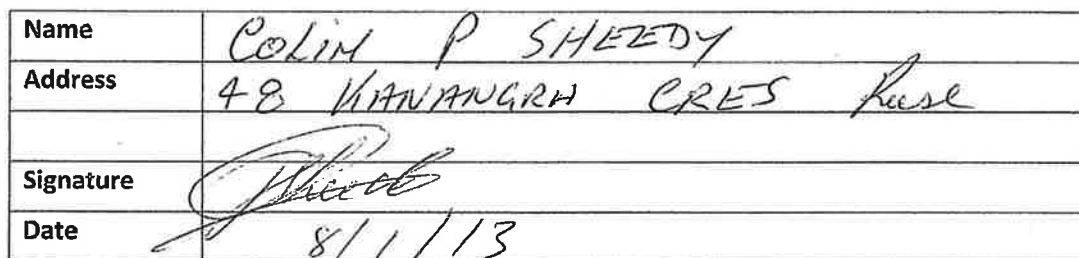 Name COLIN P SHEEDY
Address 48 KANANGRA CRES Ruse
Signature
Date 8/1/13